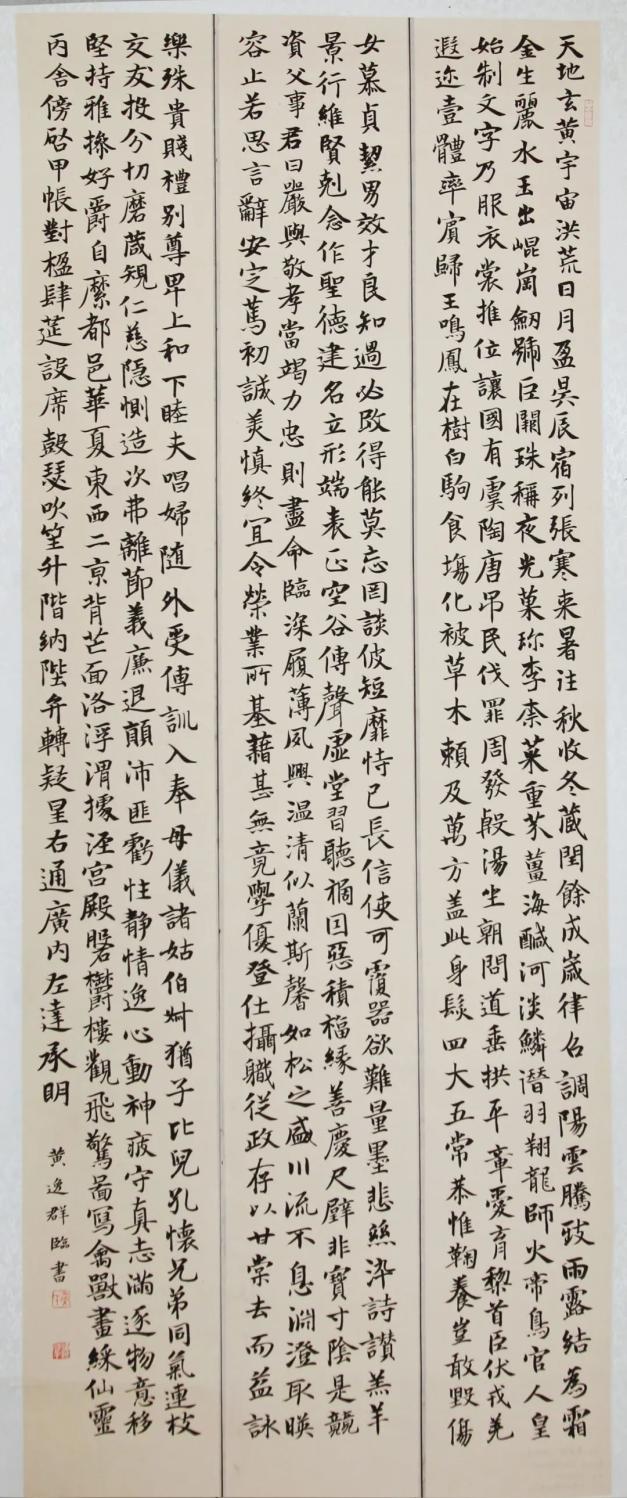 天地玄黄宇宙洪荒日月盈昃辰宿列張寒来暑往秋收冬蔵閏餘成歲律召調陽雲騰致雨露結為霜
金生麗水玉出崐崗劒號巨闕珠稱夜光菓珍李柰菜重芥薑海醎河淡鱗潛羽翔龍師火帝鳥官人皇
始制文字乃服衣裳推位讓國有虞陶唐吊民伐罪周發殷湯坐朝問道垂拱平章愛育黎首臣伏戎羌
遐迩壹體率賓歸王鳴鳳在樹白駒食場化被草木賴及萬方盖此身髮四大五常恭惟鞠養豈敢毀傷
女慕貞絜男效才良知過必改得能莫忘罔談彼短靡恃己長信使可覆器欲難量墨悲絲染詩讃羔羊
景行維賢剋念作聖德建名立形端表正空谷傳聲虛堂習聽禍因惡積福緣善慶尺璧非寶寸陰是競
資父事君曰嚴與敬孝當竭力忠則盡命臨深履薄夙興温清似蘭斯馨如松之盛川流不息淵澄取暎
容止若思言辭安定篤初誠美慎終宜令榮業所基藉甚無竟學優登仕攝職從政存以甘棠去而益詠
樂殊貴賤禮別尊卑上和下睦夫唱婦随外受傅訓入奉母儀諸姑伯叔猶子比兒孔懷兄弟同氣連枝
交友投分切磨葴規仁慈隱惻造次弗離節義廉退顛沛匪虧性静情逸心動神疲守真志滿逐物意移
堅持雅操好爵自縻都邑華夏東西二京背芒面洛浮渭據涇宮殿磐欝樓觀飛驚圖寫禽獸畫綵仙靈
丙舍傍启甲帳對楹肆莚設席鼓瑟吹笙升階納陛弁轉疑星右通廣内左達承明
黄逸群臨書